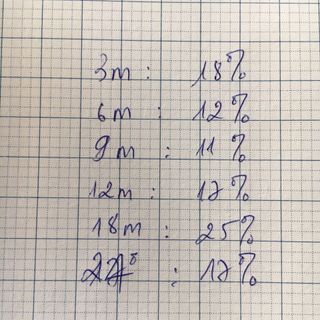 3m : 18%
6m : 12%
9m : 11%
12m : 17%
18m : 25%
: 17%